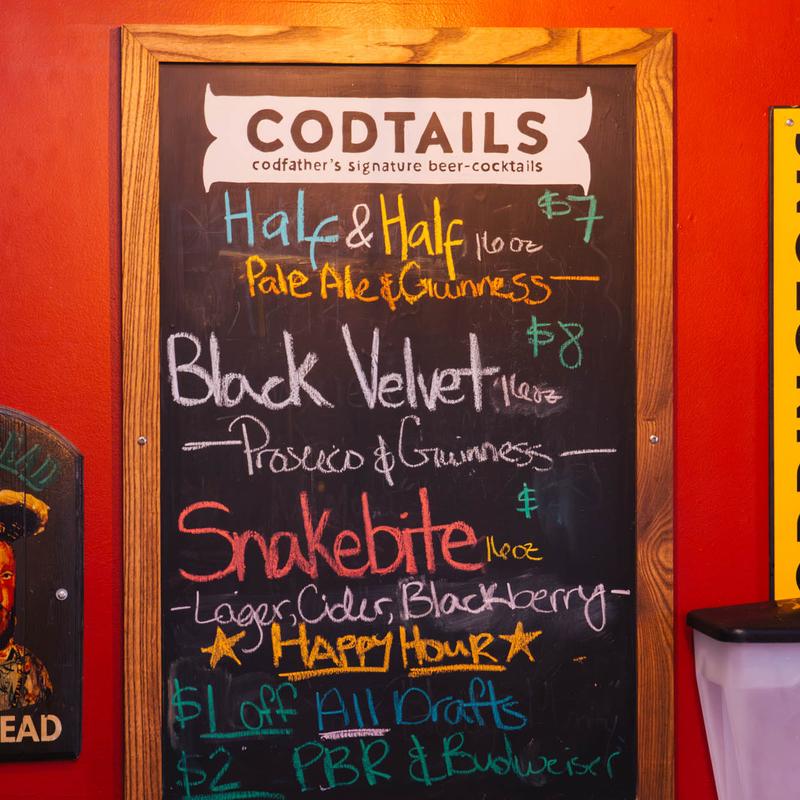 CODTAILS
codfather's signature beer-cocktails
Half & Half 16 oz $7
Pale Ale & Guinness
Black Velvet 16oz $8
Prosecco & Guinness
Snakebite 16oz $
Lager, Cider, Blackberry
HAPPY HOUR
$1 off All Drafts
$2 PBR & Budweiser
EAD